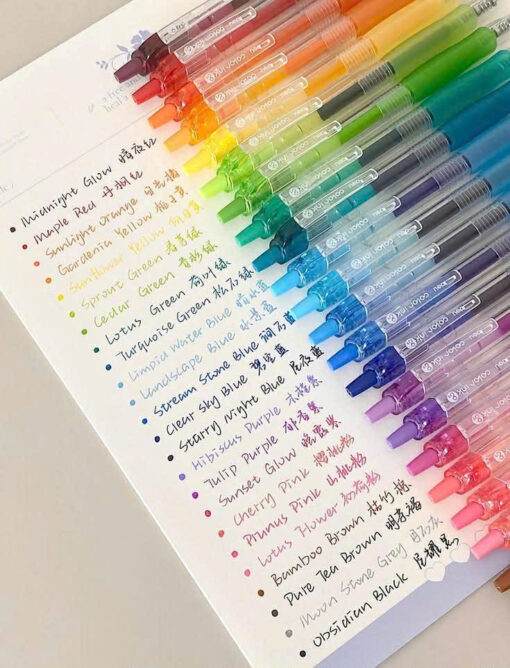 Midnight Glow 暗夜红
Maple Red 丹枫红
Sunlight Orange 日光橘
Gardenia Yellow 栀子黄
Sunflower Yellow
Sprout Green
Cedar Green 青杉绿
Lotus Green 荷叶绿
Turquoise Green 松石绿
Limpid Water Blue
Landscape Blue 水景蓝
Stream Stone Blue 涧石蓝
Clear Sky Blue 碧空蓝
Starry Night Blue 辰夜蓝
Hibiscus Purple 木槿紫
Tulip Purple 郁香紫
Sunset Glow 晚霞紫
Cherry Pink 樱桃粉
Prunus Pink 山桃粉
Lotus Flower 初荷粉
Bamboo Brown 枯竹棕
Pure Tea Brown
Moon Stone Grey 月石灰
Obsidian Black 辰耀黑